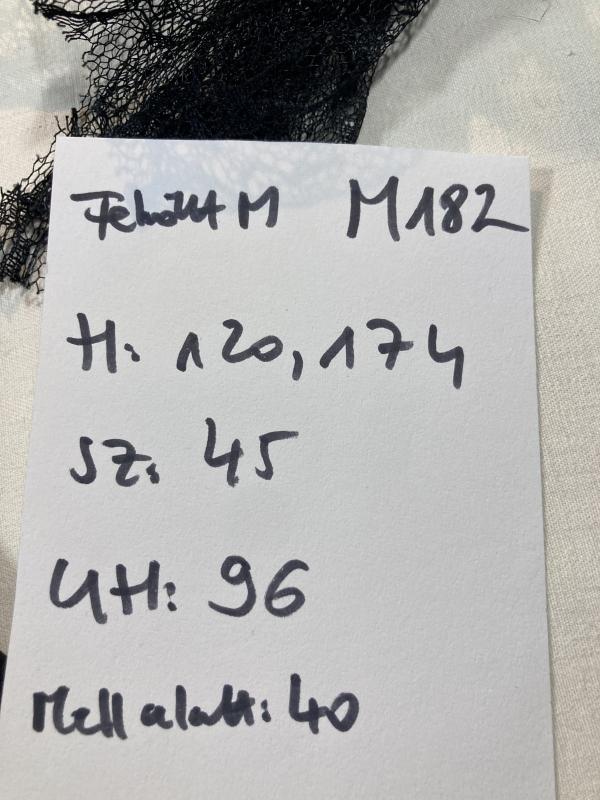 Felnőtt M M182
H: 120, 174
SZ: 45
UH: 96
Mell alatt: 40